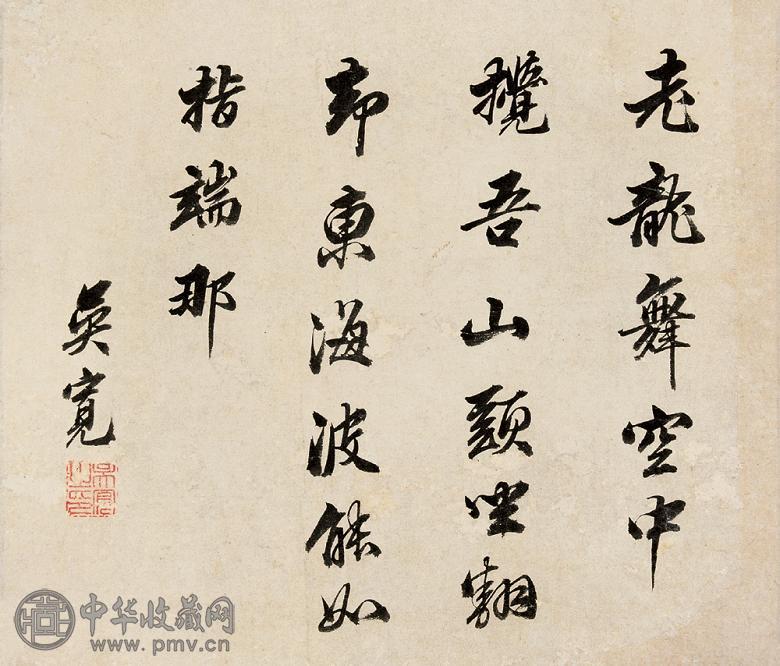 老龍舞空中
攪吾山頭坐翻
却東海波能如
指端那
吳寬
中华收藏网
www.pmv.cn